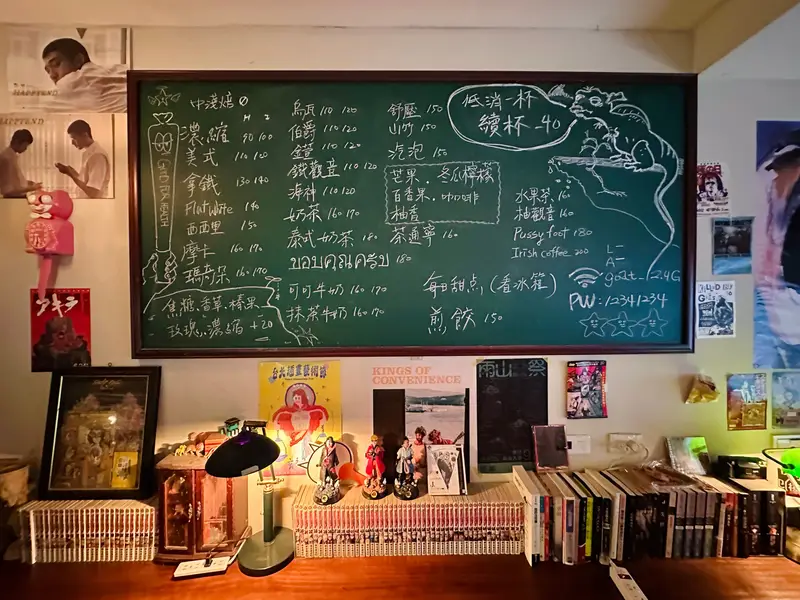 HAPPYEND
HAPPYEND
アキラ
中淺焙
H I
濃縮 90 100
美式 110 120
拿鐵 130 140
Flat white 140
西西里 150
摩卡 160 170
瑪奇朵 160 170
焦糖、香草、榛果
玫瑰、濃縮 +20
烏瓦 110 120
伯爵 110 120
金萱 110 120
鐵觀音 110 120
海神 110 120
奶茶 160 170
泰式奶茶 180
ขอบคุณครับ 180
可可牛奶 160 170
抹茶牛奶 160 170
舒壓 150
山竹 150
汽泡 150
芒果、冬瓜檸檬
百香果、咖啡
柚香
茶通寧 160
每日甜點(看冰箱)
煎餃 150
低消一杯
續杯 -40
水果茶 160
柚觀音 160
Pussy foot 180
Irish coffee 200
goat_2.4G
PW: 12341234
KINGS OF
CONVENIENCE
雨山祭